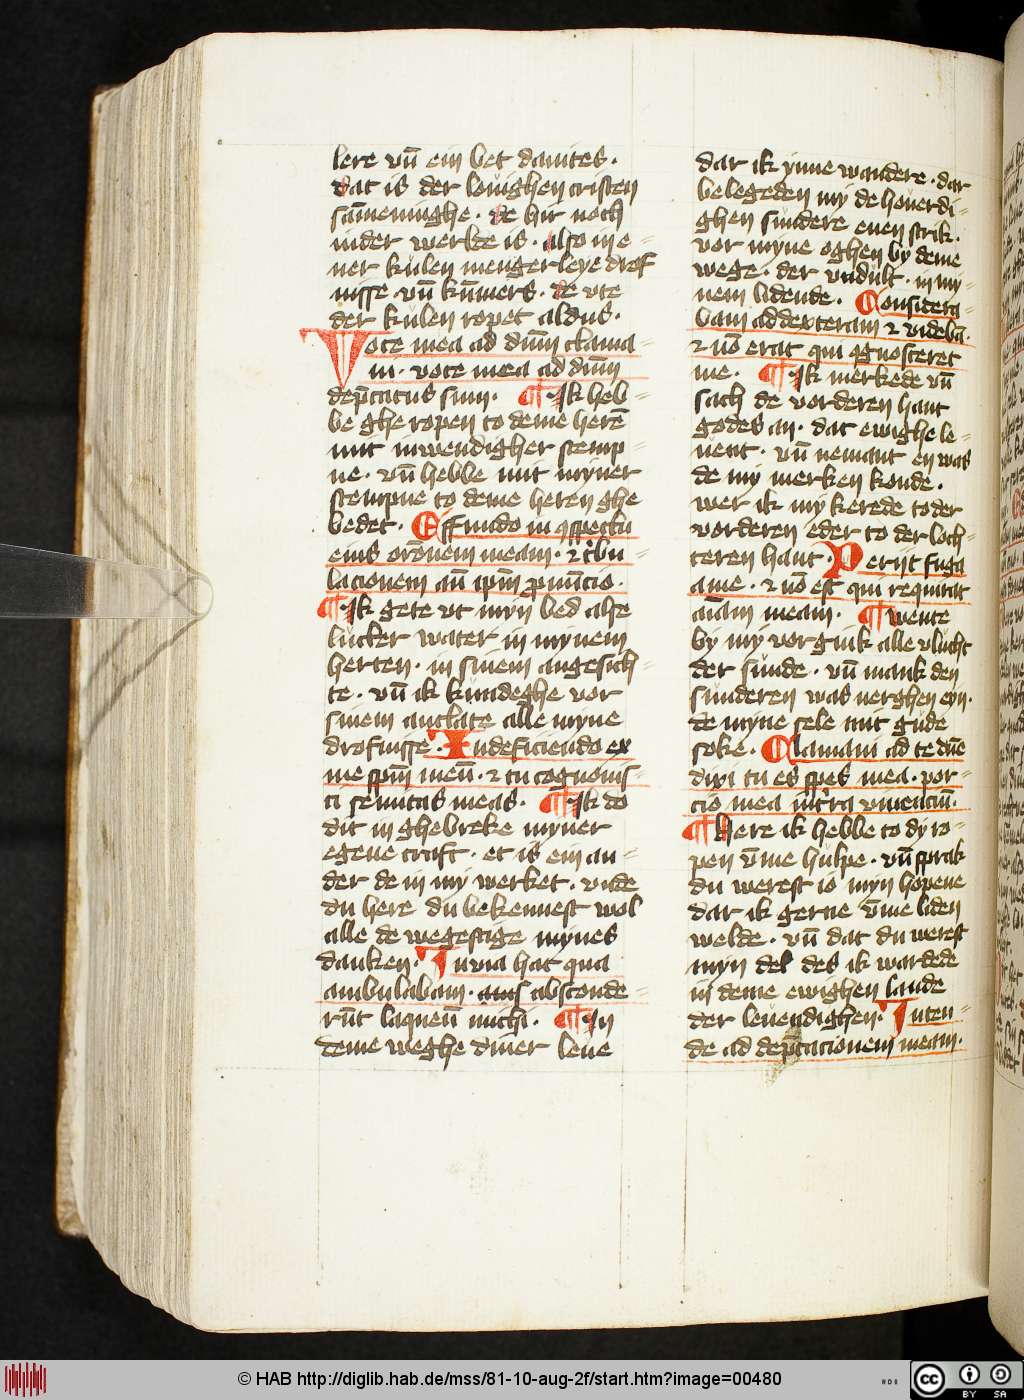 lere vn̄ ein bet dauites·
dat is der louighen cristen
sāmeninghe· de hir noch
nider werlde is· also in e⸗
ner kulen mengerleye drof
nisse· vn̄ kūmers· de vte
der kulen ropet aldus·
Voce mea ad dn̄m clama⸗
ui· voce mea ad dn̄m
dep̄catus sum· ¶ Ik heb⸗
be ghe ropen to deme herē
mit inwendigher stemp⸗
ne· vn̄ hebbe mit myner
stempne to deme heren ghe
bedet· Effundo in ꝯspectu
eius orōnem meam· ⁊ t̄bu⸗
lacionem an̄ ip̄m p̄nūcio·
¶ Ik gete vt myn bed alse
lucker water in mynem
herten· in sinem angesich⸗
te· vn̄ ik kundeghe vor
sinem antlate alle myne
drofnisse· In deficiendo ex
me sp̄m meū· ⁊ tu cognouis
ti semitas meas· ¶ Ik do
dit in ghebreke myner
egene craft· et is ein an⸗
der de in my werket· vnde
du here du bekennest wol
alle de wegestige mynes
danken· In via hac qua
ambulabam· absconde⸗
rūt laqueū michi· ¶ In
deme weghe diner leue
dar ik ynne wandere· dar
belegeden my de houerdi⸗
ghen sundere enen strik·
vor myne oghen by deme
wege· der vndult· in my⸗
nem lidende· Considera
bam ad dexteram ⁊ videbā·
⁊ nō erat qui ꝯgnosceret
me· ¶ Ik merkede vn̄
sach de vorderen hant
godes an· dat ewighe le⸗
uent· vn̄ nemant en was
de my merken konde·
wer ik my kerede to der
vorderen eder to der loch⸗
teren hant· Perijt fuga
a me· ⁊ nō est qui requirat
aīam meam· ¶ Wente
by my vorgink alle vlucht
der sunde· vn̄ mank den
sunderen was nerghen eyn·
de myne sele mit gude
soke· Clamaui ad te dn̄e
dixi tu es spes mea· por⸗
cio mea in t̄ra viuenciū·
¶ Here ik hebbe to dy ro⸗
pen v̄me hulpe· vn̄ sprak
du werest io myn hopene
dar ik gerne v̄me liden
welde· vn̄ dat du werest
myn del des ik wardede
in deme ewighen lande
der leuendighen· Inten⸗
de ad dep̄cacionem meam·
© HAB http://diglib.hab.de/mss/81-10-aug-2f/start.htm?image=00480
cc BY SA